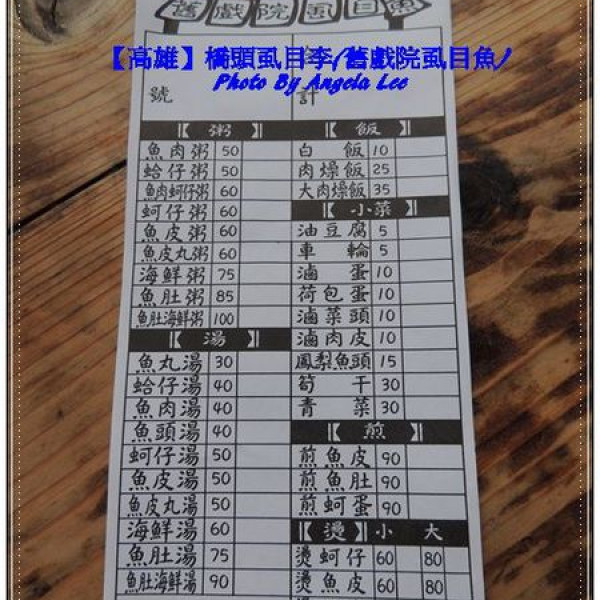 舊戲院虱目魚
【高雄】橋頭虱目李/舊戲院虱目魚/
Photo By Angela Lee
號 計
【粥】
魚肉粥 50
蛤仔粥 50
魚肉蚵仔粥 60
蚵仔粥 60
魚皮粥 60
魚皮丸粥 60
海鮮粥 75
魚肚粥 85
魚肚海鮮粥 100
【湯】
魚丸湯 30
蛤仔湯 40
魚肉湯 40
魚頭湯 40
蚵仔湯 50
魚皮湯 50
魚皮丸湯 50
海鮮湯 60
魚肚湯 75
魚肚海鮮湯 90
【飯】
白飯 10
肉燥飯 25
大肉燥飯 35
【小菜】
油豆腐 5
車輪 5
滷蛋 10
荷包蛋 10
滷菜頭 10
滷肉皮 10
鳳梨魚頭 15
筍干 30
青菜 30
【煎】
煎魚皮 90
煎魚肚 90
煎蚵蛋 90
【燙】小 大
燙蚵仔 60 80
燙魚皮 60 80